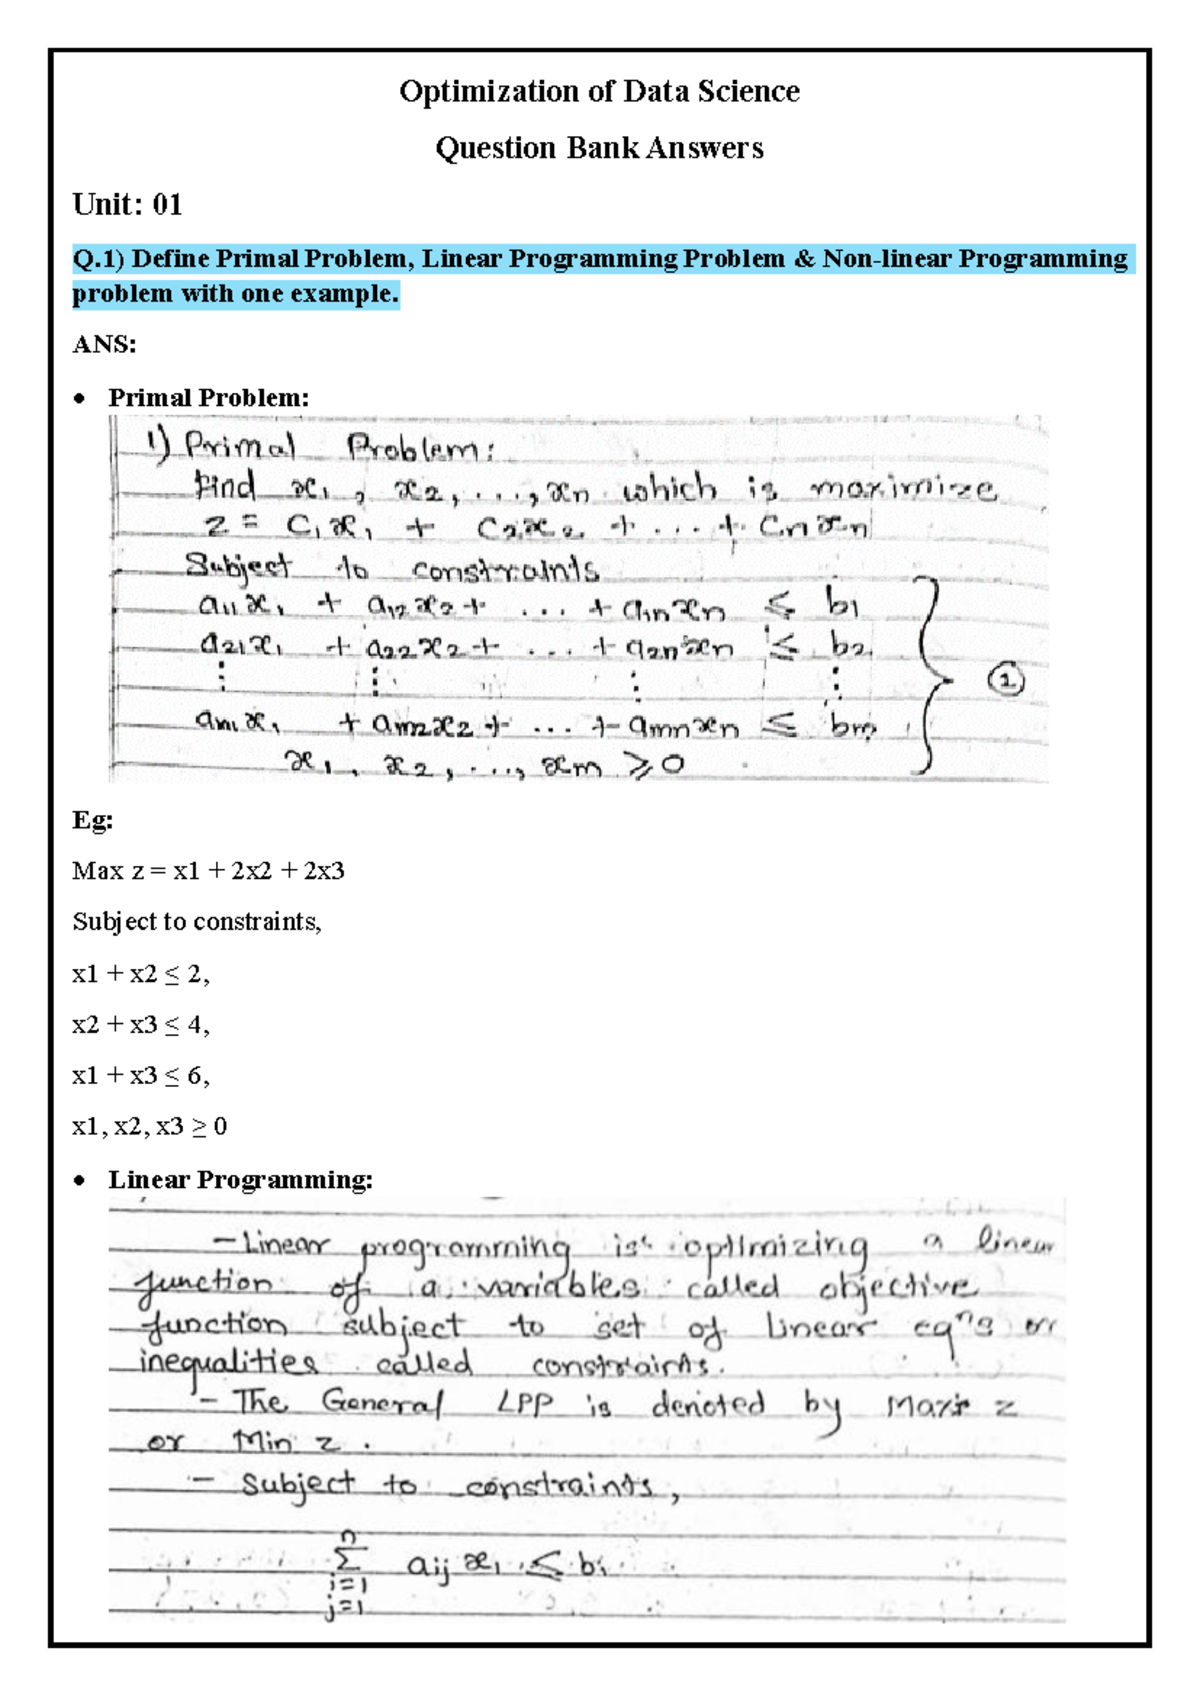 Optimization of Data Science
Question Bank Answers
Unit: 01
Q.1) Define Primal Problem, Linear Programming Problem & Non-linear Programming
problem with one example.
ANS:
• Primal Problem:
1) Primal Problem:
Find x1, x2, ..., xn which is maximize
z = C1x1 + C2x2 + ... + Cnxn
Subject to constraints
a11x1 + a12x2 + ... + a1nxn ≤ b1
a21x1 + a22x2 + ... + a2nxn ≤ b2
⋮ ⋮ ⋮ ⋮ ①
am1x1 + am2x2 + ... + amnxn ≤ bm
x1, x2, ..., xm ≥ 0
Eg:
Max z = x1 + 2x2 + 2x3
Subject to constraints,
x1 + x2 ≤ 2,
x2 + x3 ≤ 4,
x1 + x3 ≤ 6,
x1, x2, x3 ≥ 0
• Linear Programming:
- Linear programming is optimizing a linear
function of a variables called objective
function subject to set of linear eqns or
inequalities called constraints.
- The General LPP is denoted by Max z
or Min z.
- Subject to constraints,
n
Σ aij xi ≤ bi
i=1
j=1